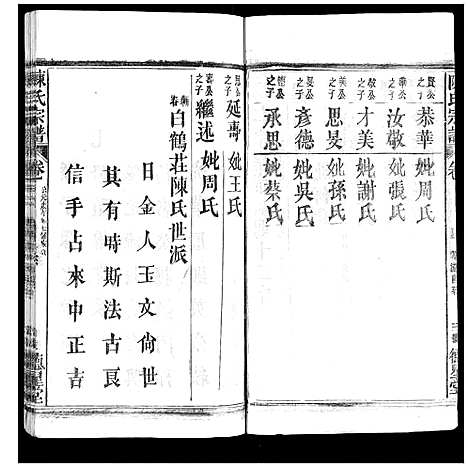 陳氏宗譜
賢公之子 恭華 妣周氏
華公之子 汝敬 妣張氏
敬公之子 才美 妣謝氏
美公之子 思旻 妣孫氏
旻公之子 彥德 妣吳氏
德公之子 承思 妣蔡氏
思公之子 延壽 妣王氏
壽公之子 繼述 妣周氏
白鶴莊陳氏世派
日金人玉文尙世
其有時斯法古良
信手占來中正吉
陳氏宗譜 卷一
德星堂